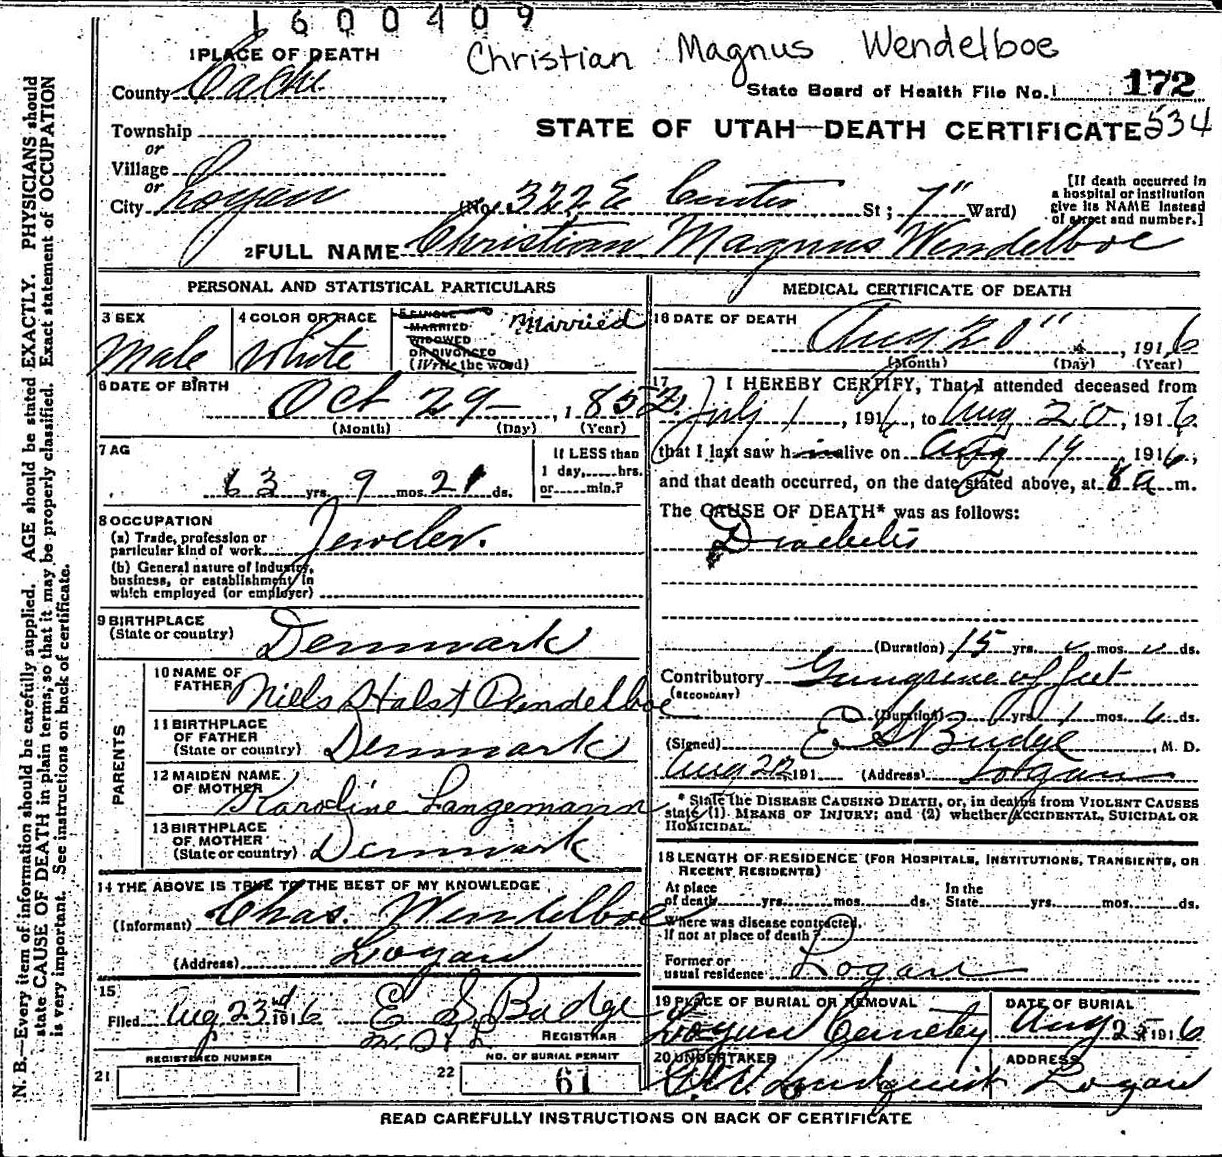 1600409
Christian Magnus Wendelboe
1 PLACE OF DEATH
County Cache
State Board of Health File No. 172
STATE OF UTAH—DEATH CERTIFICATE 534
Township
or
Village
or
City Logan (No. 322 E Center St; 7" Ward)
[If death occurred in
a hospital or institution
give its NAME instead
of street and number.]
2 FULL NAME Christian Magnus Wendelboe
PERSONAL AND STATISTICAL PARTICULARS
3 SEX
Male
4 COLOR OR RACE
White
5 SINGLE
MARRIED
WIDOWED
OR DIVORCED
(Write the word)
Married
6 DATE OF BIRTH
Oct 29 , 1852.
(Month) (Day) (Year)
7 AG
63 yrs. 9 mos. 21 ds.
If LESS than
1 day, hrs.
or min.?
8 OCCUPATION
(a) Trade, profession or
particular kind of work Jeweler.
(b) General nature of Industry,
business, or establishment in
which employed (or employer)
9 BIRTHPLACE
(State or country) Denmark
PARENTS
10 NAME OF
FATHER Niels Holst Wendelboe
11 BIRTHPLACE
OF FATHER
(State or country) Denmark
12 MAIDEN NAME
OF MOTHER Karoline Langemann
13 BIRTHPLACE
OF MOTHER
(State or country) Denmark
14 THE ABOVE IS TRUE TO THE BEST OF MY KNOWLEDGE
(Informant) Chas. Wendelboe
(Address) Logan
15
Filed Aug 23rd 1916 E S Budge
REGISTRAR
REGISTERED NUMBER
21
NO. OF BURIAL PERMIT
22 61
MEDICAL CERTIFICATE OF DEATH
16 DATE OF DEATH
Aug 20" , 1916
(Month) (Day) (Year)
17 I HEREBY CERTIFY, That I attended deceased from
July 1, 1916, to Aug 20, 1916.
that I last saw him alive on Aug 19 1916,
and that death occurred, on the date stated above, at 8 a m.
The CAUSE OF DEATH* was as follows:
Diabetis
(Duration) 15 yrs. mos. ds.
Contributory Gangrene of feet
(SECONDARY)
(Duration) yrs. 1 mos. 6 ds.
(Signed) E S Budge, M. D.
Aug 22 191 (Address) Logan
* State the DISEASE CAUSING DEATH, or, in deaths from VIOLENT CAUSES
state (1) MEANS OF INJURY; and (2) whether ACCIDENTAL, SUICIDAL OR
HOMICIDAL.
18 LENGTH OF RESIDENCE (FOR HOSPITALS, INSTITUTIONS, TRANSIENTS, OR
RECENT RESIDENTS)
At place
of death yrs. mos. ds.
In the
State yrs. mos. ds.
Where was disease contracted,
If not at place of death?
Former or
usual residence Logan
19 PLACE OF BURIAL OR REMOVAL
Logan Cemetery
DATE OF BURIAL
Aug 1916
20 UNDERTAKER
Lundquist
ADDRESS
Logan
READ CAREFULLY INSTRUCTIONS ON BACK OF CERTIFICATE
N. B.—Every item of information should be carefully supplied. AGE should be stated EXACTLY. PHYSICIANS should
state CAUSE OF DEATH in plain terms, so that it may be properly classified. Exact statement of OCCUPATION
is very important. See instructions on back of certificate.